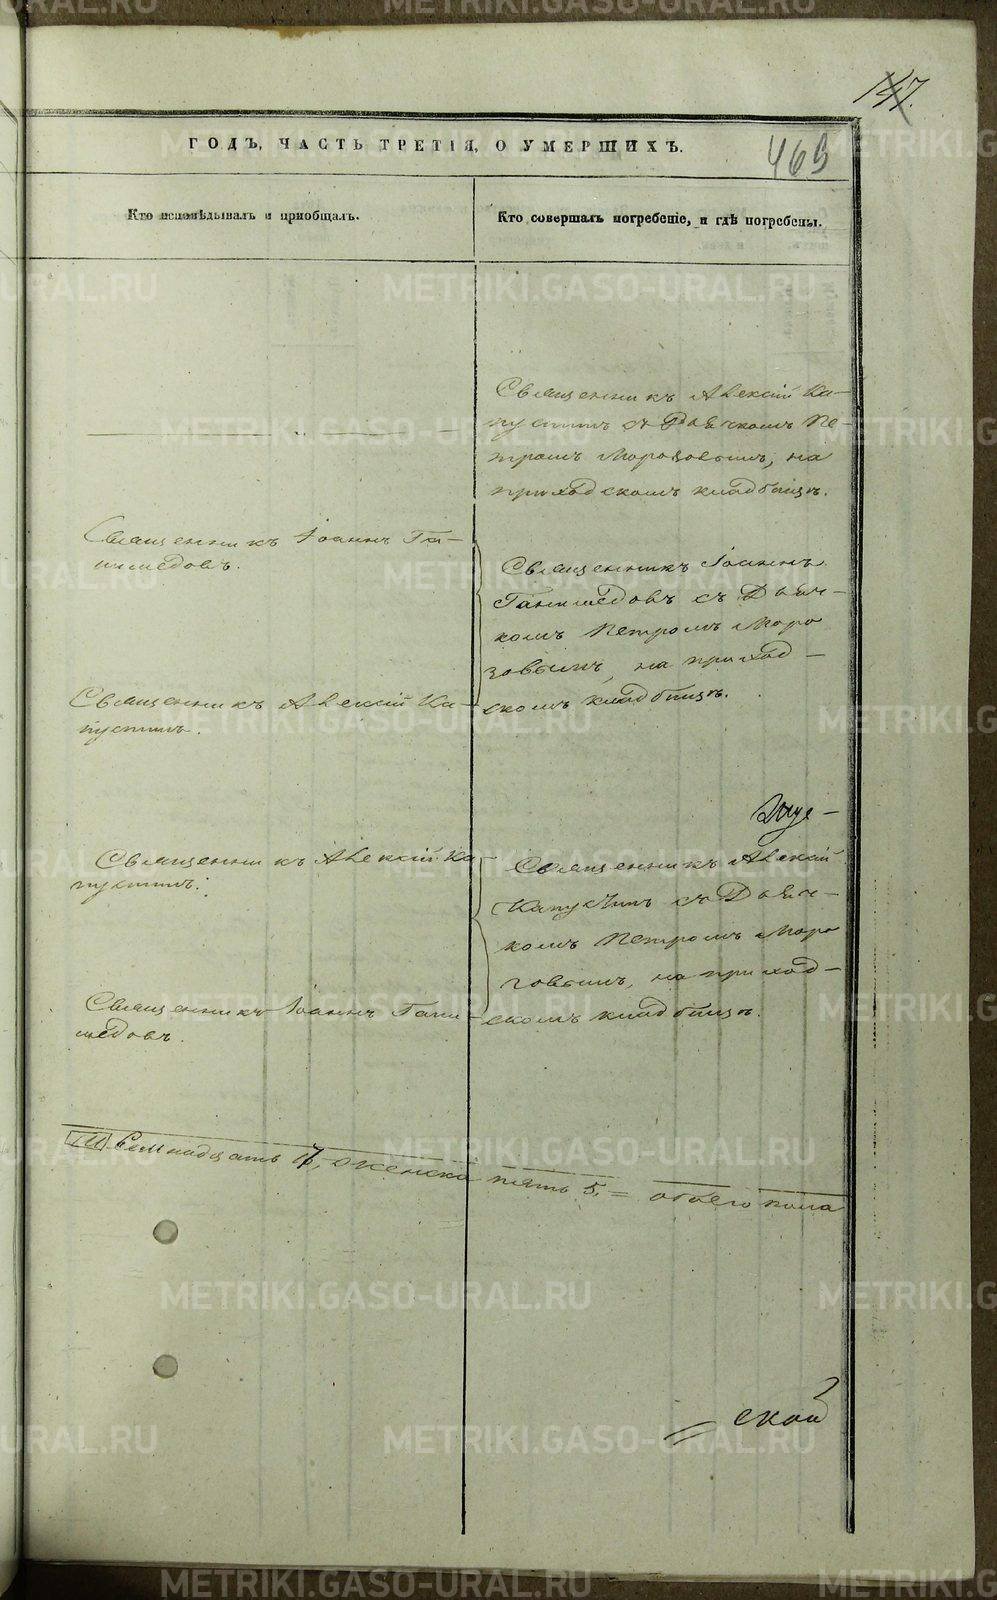 147.
469
ГОДЪ, ЧАСТЬ ТРЕТІЯ, О УМЕРШИХЪ.
Кто исповѣдывалъ и пріобщалъ.
Кто совершалъ погребеніе, и гдѣ погребены.
Священникъ Алексій Ка-
пустинъ съ Дьячкомъ Пе-
тромъ Морозовымъ, на
приходскомъ кладбищѣ.
Священникъ Іоаннъ Га-
нимедовъ.
Священникъ Іоаннъ
Ганимедовъ съ Дьяч-
комъ Петромъ Моро
зовымъ, на приход-
скомъ кладбищѣ.
Священникъ Алексій Ка-
пустинъ.
Священникъ Алексій Ка
пустинъ.
Священникъ Алексій
Капустинъ съ Дьяч-
комъ Петромъ Моро
зовымъ, на приход-
скомъ кладбищѣ.
Священникъ Іоаннъ Гани-
медовъ.
семнадцать 17, женска пять 5. = обоего пола
ской
METRIKI.GASO-URAL.RU